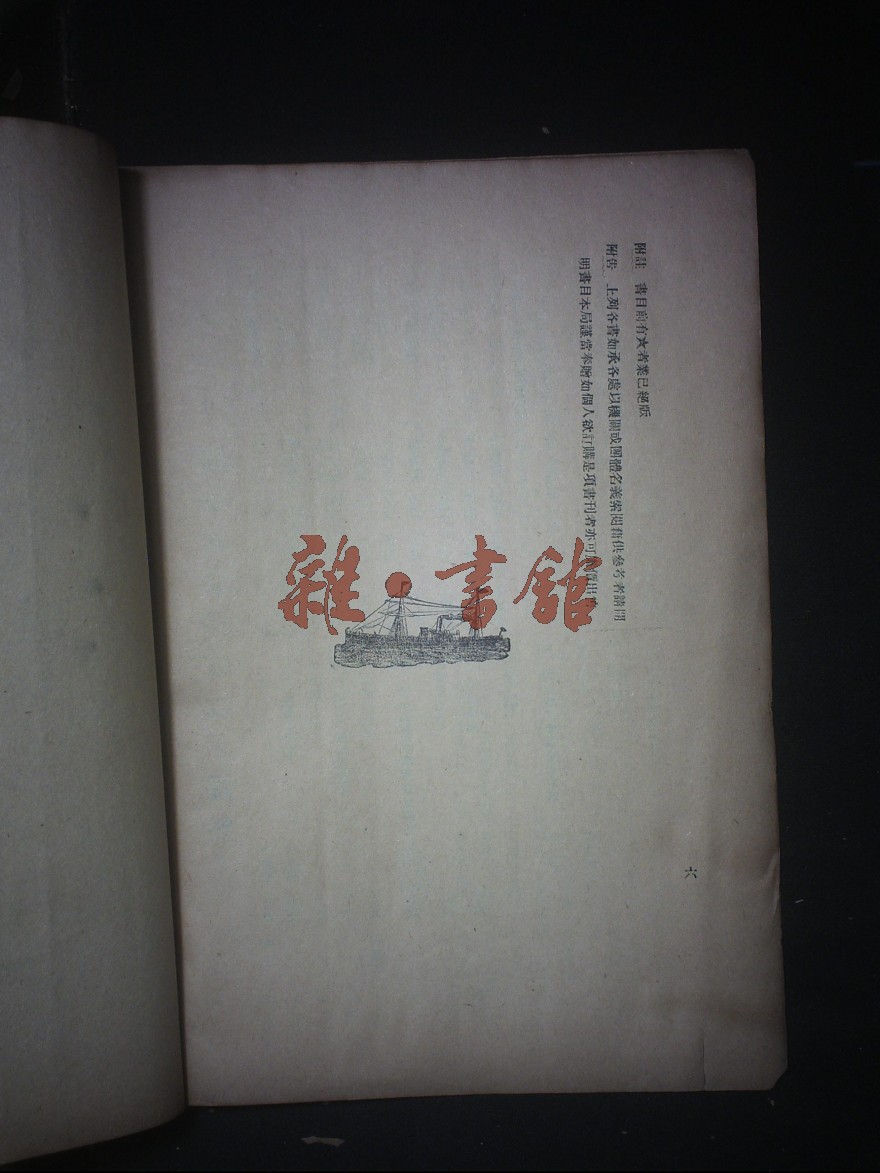 附註　書目前有★者業已絕版
附告　上列各書如承各處以機關或團體名義索閱藉供參考者請開
明書目本局謹當奉贈如個人欲訂購是項書刊者亦可
六
雜·書館